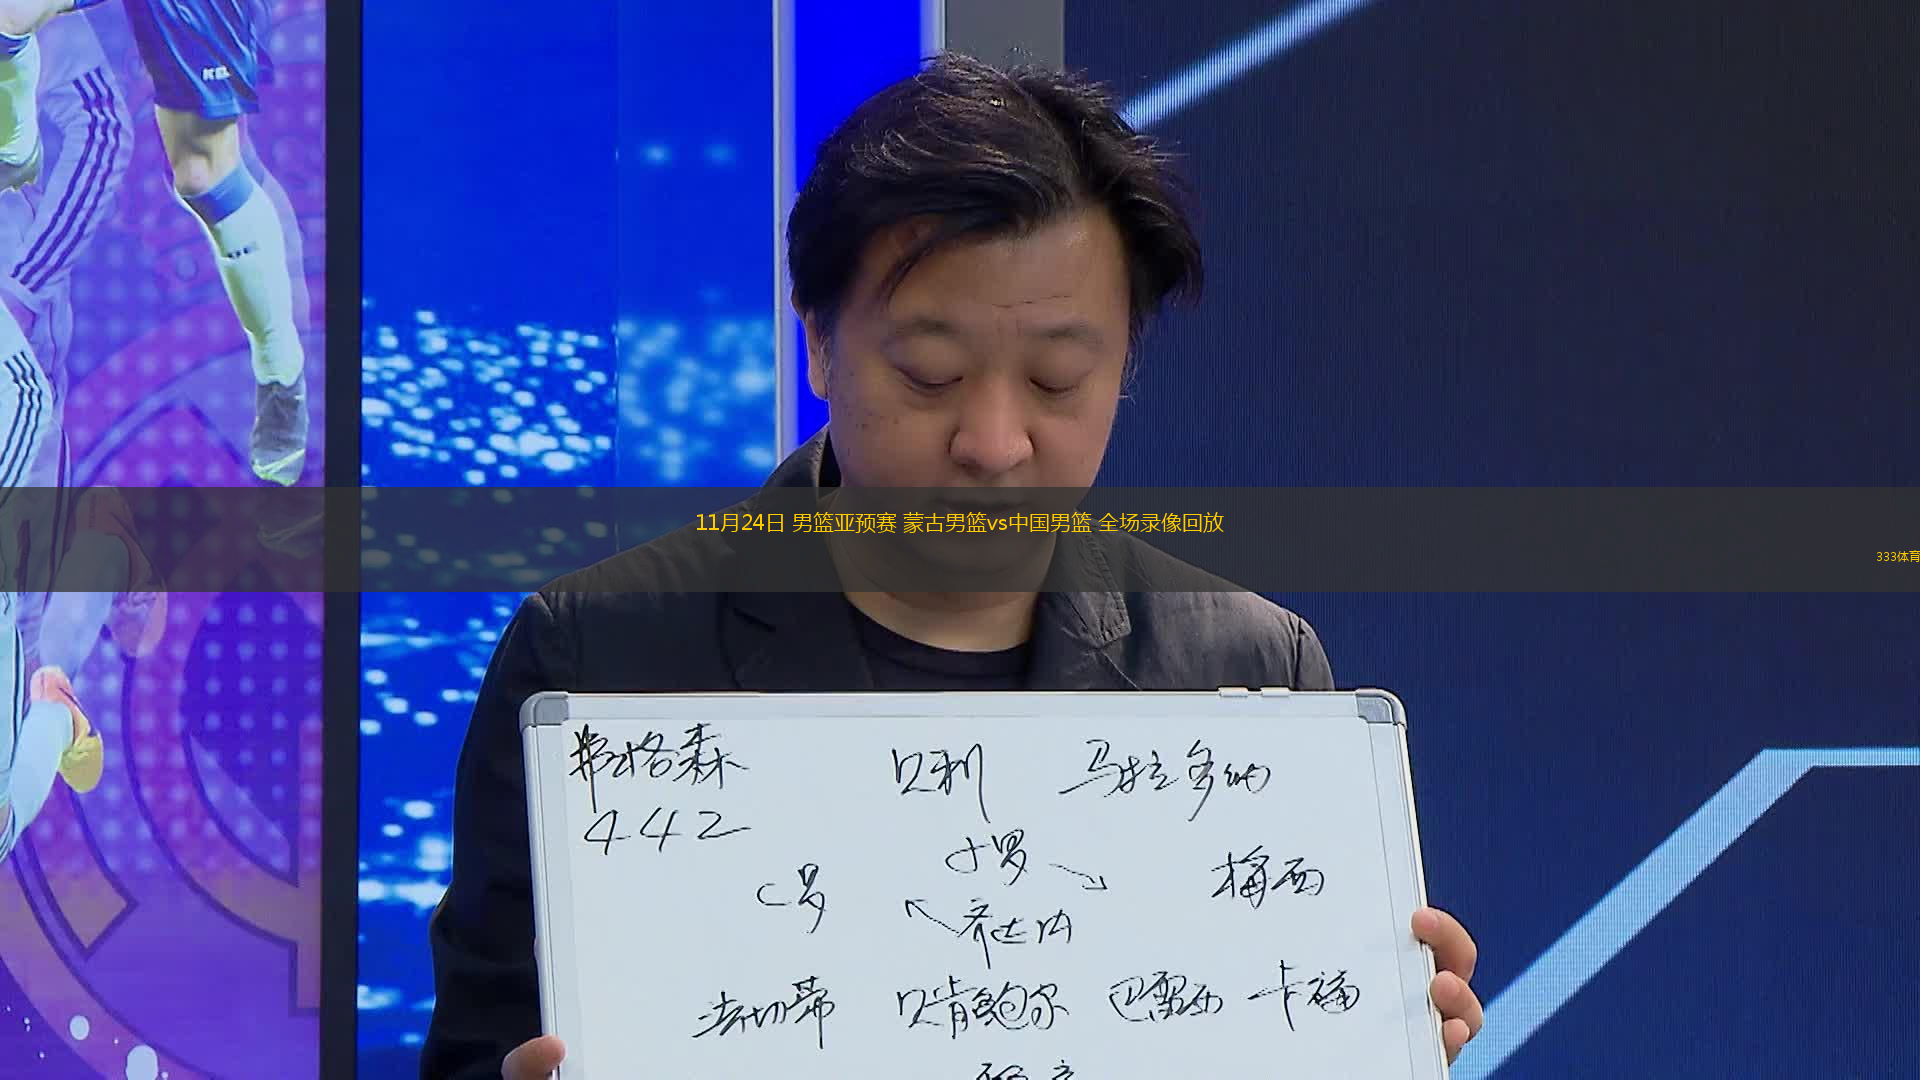 11月24日 男篮亚预赛 蒙古男篮vs中国男篮 全场录像回放
333体育
弗格森 贝利 马拉多纳
442
小罗
C罗 梅西
齐达内
法切蒂 贝肯鲍尔 巴雷西 卡福